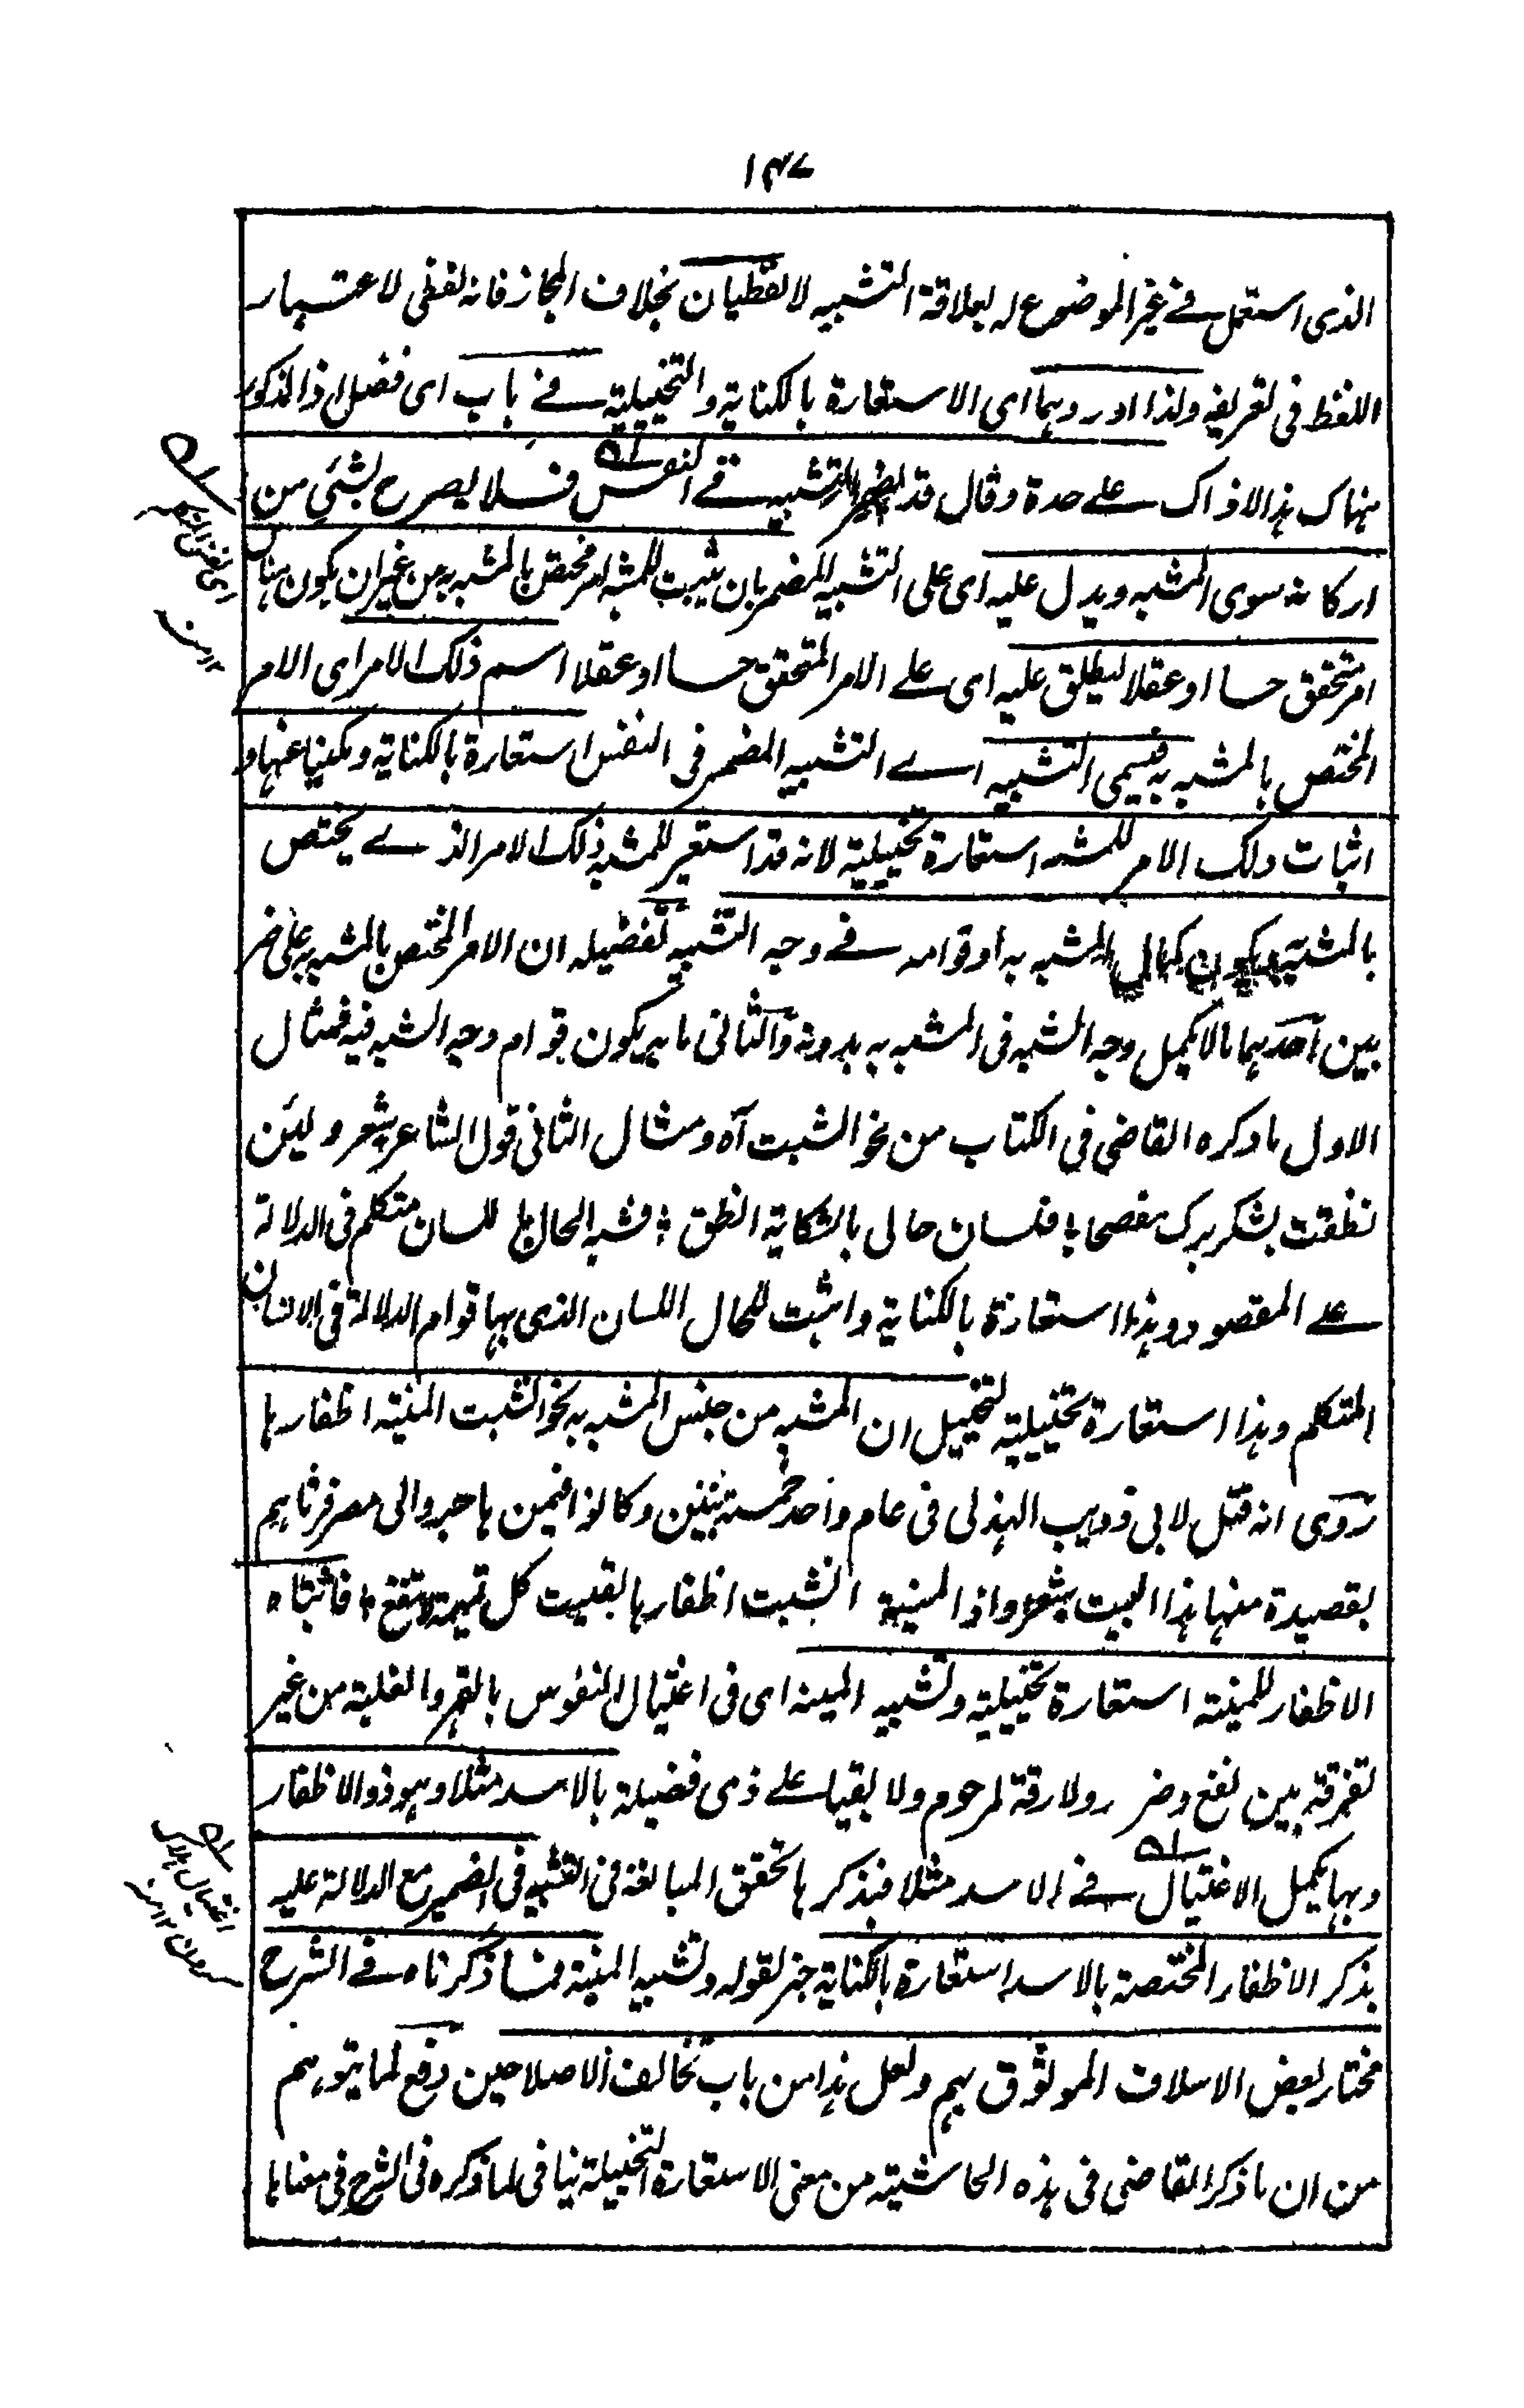 ١٤٧
الذى استعمل فى غير الموضوع له لعلاقة التشبيه لا لفظيان بخلاف المجاز فانه لفظى لاعتبار
اللفظ فى تعريفه ولذا اوردهما اى الاستعارة بالكناية والتخييلية فى باب اى فصل اذ المذكور
هناك هذا لا ذاك على حدة وقال قد يضمر التشبيه فى النفس فلا يصرح بشئ من
اركانه سوى المشبه ويدل عليه اى على التشبيه المضمر بان يثبت للمشبه امر مختص بالمشبه به من غير ان يكون هناك
امر متحقق حسا او عقلا ليطلق عليه اى على الامر المتحقق حسا او عقلا اسم ذلك الامر اى الامر
المختص بالمشبه به فيسمى التشبيه اے التشبيه المضمر فى النفس استعارة بالكناية ومكنيا عنها و
اثبات ذلك الامر للمشبه استعارة تخييلية لانه قد استعير للمشبه ذلك الامر الذے يختص
بالمشبه به ويكون كمال المشبه به او قوامه فى وجه التشبيه تفضيله ان الامر المختص بالمشبه به على ضر
بين احدهما ما لا يكمل وجه الشبه فى المشبه به بدونه والثانى ما به يكون قوام وجه الشبه فيه فمثال
الاول ما ذكره القاضى فى الكتاب من نحو انشبت آه ومثال الثانى قول الشاعر شعر ولئن
نطقت بشكر برك مفصحا ؛ فلسان حالى بالشكاية انطق ؛ شبه الحال بلسان متكلم فى الدلالة
على المقصود وهذا استعارة بالكناية واثبت للحال اللسان الذى بها قوام الدلالة فى الانسان
المتكلم وهذا استعارة تخييلية لتخييل ان المشبه من جنس المشبه به نحو انشبت المنية اظفارها
روى انه قتل لابى ذويب الهذلى فى عام واحد خمسة بنين وكانوا فيمن هاجروا الى مصر فرثاهم
بقصيدة منها هذا البيت شعر واذا المنية انشبت اظفارها الفيت كل تميمة لا تنفع ؛ فاثبتاه
الاظفار للمنية استعارة تخييلية وتشبيه المنية اى فى اغتيال النفوس بالقهر والغلبة من غير
تفرقة بين نفع وضر رولا رقة لمرحوم ولا بقيا على ذى فضيلة بالاسد مثلا وهو ذو الاظفار
وبها يكمل الاغتيال فى الاسد مثلا فبذكرها تحقق المبالغة فى التشبيه فى الضمير مع الدلالة عليه
بذكر الاظفار المختصة بالاسد استعارة بالكناية خبر لقوله وتشبيه المنية فما ذكرناه فى الشرح
مختار بعض الاسلاف الموثوق بهم ولعل هذا من باب تخالف الاصلاحين دفع لما يتوهم
من ان ما ذكر القاضى فى هذه الحاشية من معنى الاستعارة التخييلية ينافى لما ذكره فى الشرح فى معناها
اى نفس المتكلم
١٢ منه
اغتيال ہلاک
١٢ منہ